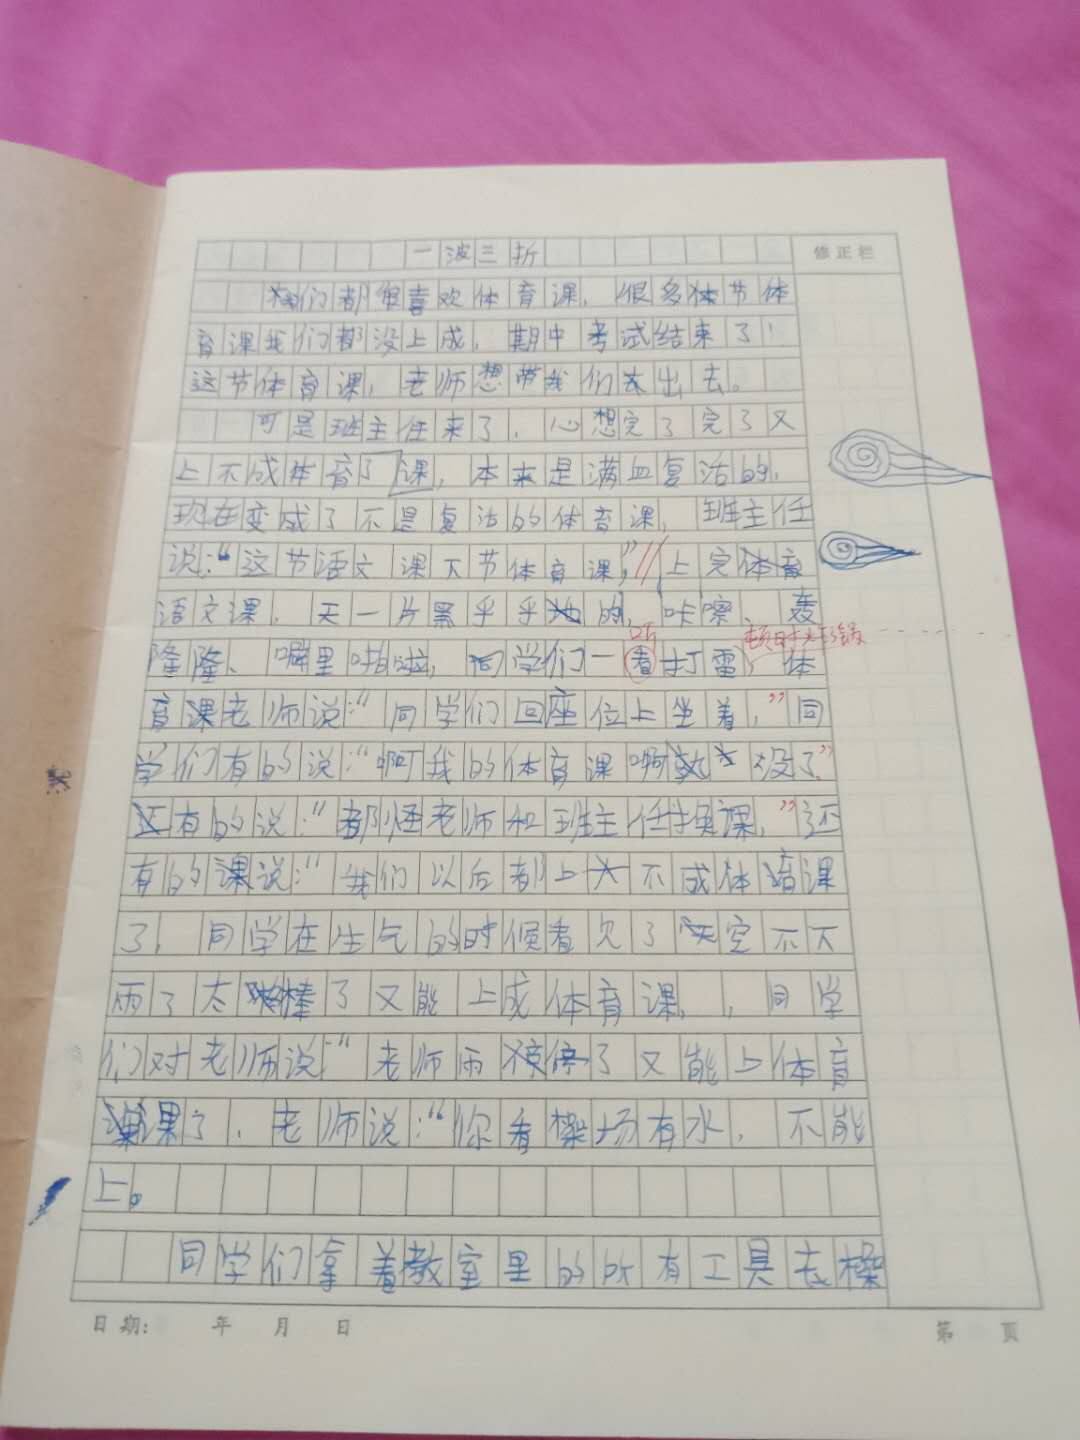 一波三折
修正栏
我们都很喜欢体育课，很多体节体
育课我们都没上成，期中考试结束了！
这节体育课，老师想带我们去出去。
可是班主任来了，心想完了完了又
上不成体育了课，本来是满血复活的，
现在变成了不是复活的体育课，班主任
说：“这节语文课下节体育课，”//上完体育
语文课，天一片黑乎乎的，咔嚓、轰
听 顿时炸了锅
隆隆、噼里啪啦，同学们一看打雷，体
育课老师说：“同学们回座位上坐着，”同
学们有的说：“啊我的体育课啊就没了”
还有的说：“都怪老师和班主任换课，”还
有的课说：“我们以后都上不成体育课
了，同学在生气的时候看见了天空不下
雨了太棒了又能上成体育课，，同学
们对老师说：“老师雨停了又能上体育
课了，老师说：“你看操场有水，不能
上。
同学们拿着教室里的所有工具去操
日期： 年 月 日
第 页